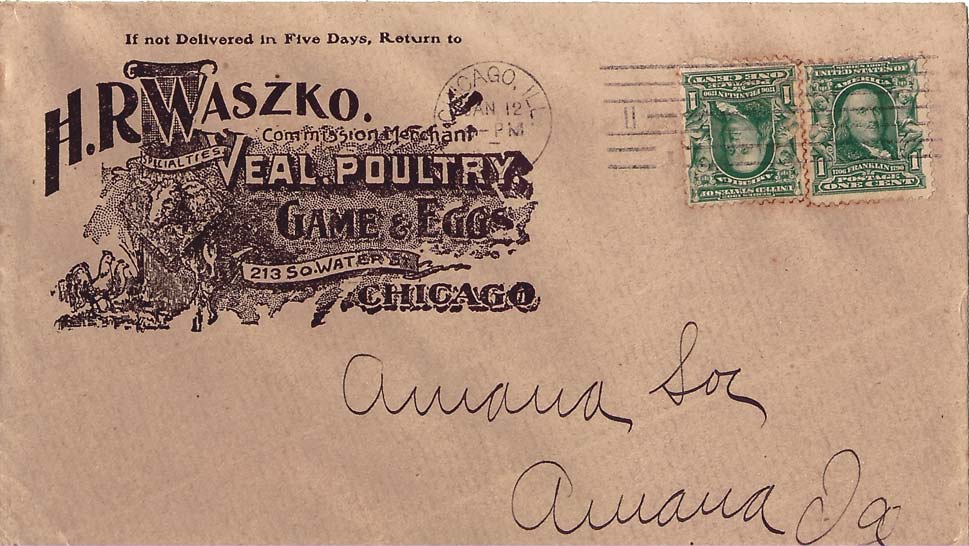 If not Delivered in Five Days, Return to
H. R. WASZKO.
Commission Merchant
SPECIALTIES
VEAL. POULTRY.
GAME & EGGS
213 SO. WATER ST.
CHICAGO
CHICAGO, ILL
JAN 12
PM
UNITED STATES OF
AMERICA
1706 FRANKLIN 1790
1 POSTAGE 1
ONE CENT
UNITED STATES OF
AMERICA
1706 FRANKLIN 1790
1 POSTAGE 1
ONE CENT
Amana Soc
Amana Ia